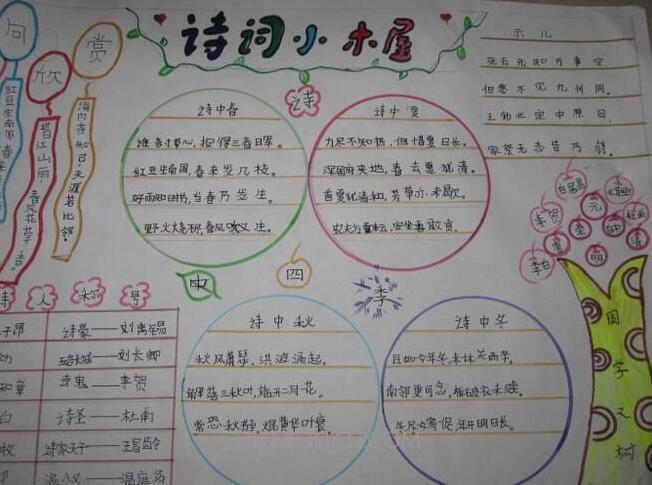 诗词小木屋
句
欣
赏
红豆生南国
迟日江山丽,
春风花草香。
海内存知己,天涯若比邻。
诗
诗中春
谁言寸草心,报得三春晖。
红豆生南国,春来发几枝。
好雨知时节,当春乃发生。
野火烧不尽,春风吹又生。
诗中夏
力尽不知热,但惜夏日长。
深居俯夹地,春去夏犹清。
首夏犹清和,芳草亦未歇。
示儿
死去元知万事空
但悲不见九州同。
王师北定中原日
家祭无忘告乃翁。
中
四
季
李贺
元
杜甫
李白
明
清
诗人称号
子昂
诗豪——刘禹锡
五言长城——刘长卿
知章
诗鬼——李贺
白
诗圣——杜甫
牧
诗家天子——王昌龄
诗中秋
秋风萧瑟,洪波涌起。
解落三秋叶,能开二月花。
常恐秋节至,焜黄华叶衰
诗中冬
且如今年冬,未休关西卒。
南邻更可念,布破衣未赎。
国学文树